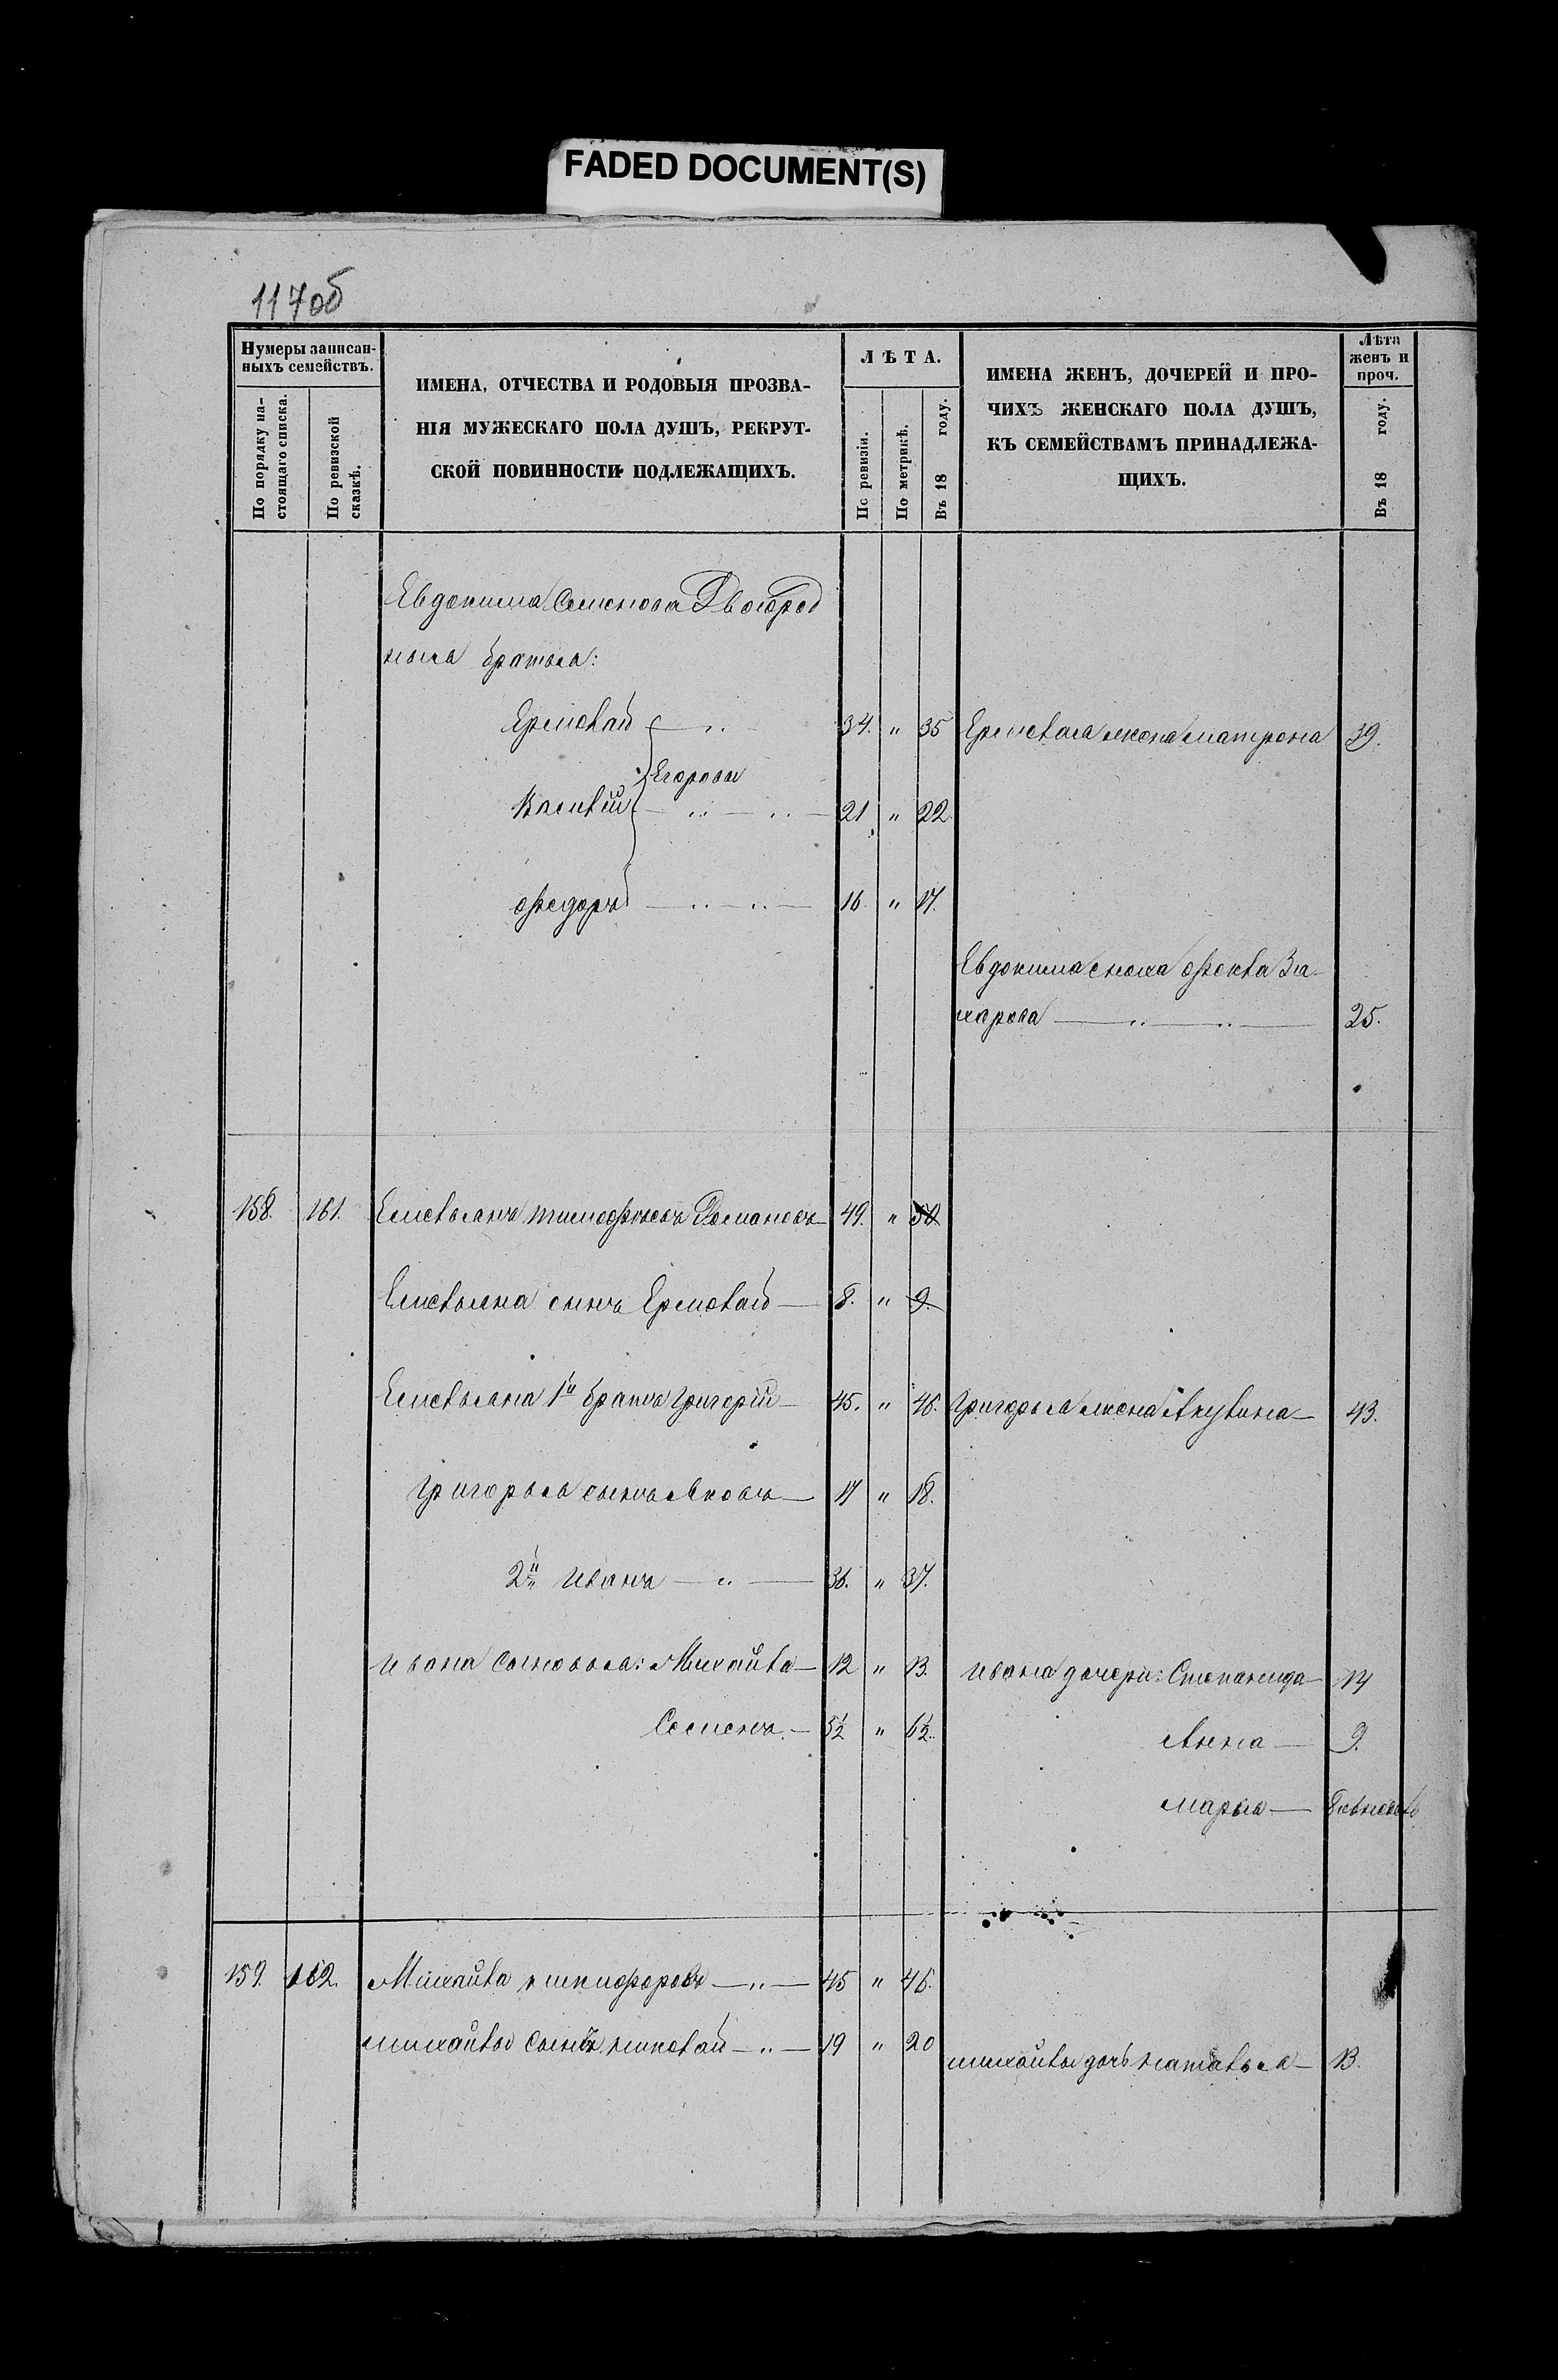 FADED DOCUMENT(S)
117об
Нумеры записан-
ныхъ семействъ.
По порядку на-
стоящаго списка.
По ревизской
сказкѣ.
ИМЕНА, ОТЧЕСТВА И РОДОВЫЯ ПРОЗВА-
НІЯ МУЖЕСКАГО ПОЛА ДУШЪ, РЕКРУТ-
СКОЙ ПОВИННОСТИ ПОДЛЕЖАЩИХЪ.
ЛѢТА.
По ревизіи.
По метрикѣ.
Въ 18 году.
ИМЕНА ЖЕНЪ, ДОЧЕРЕЙ И ПРО-
ЧИХЪ ЖЕНСКАГО ПОЛА ДУШЪ,
КЪ СЕМЕЙСТВАМЪ ПРИНАДЛЕЖА-
ЩИХЪ.
Лѣта
женъ и
проч.
Въ 18 году.
Евдокима Семенова Двоюрод
ныя братья:
Ермолай 34. " 35 Ермолая жена Матрона 39.
Егоровы
Василій 21 " 22
Федоръ 16 " 17.
Евдокима сноха Фекла За-
харова 25.
158. 161. Емельянъ Тимофѣевъ Романовъ 49. " 50
Емельяна сынъ Ермолай 8. " 9.
Емельяна 1й братъ Григорій 45. " 46. Григорья жена Акулина 43.
Григорья сынъ Яковъ 17 " 18.
2й Иванъ 36. " 37.
Ивана сыновья: Михайла 12 " 13. Ивана дочери: Степанида 14
Семенъ 5½ " 6½. Анна 9.
Марья
159. 162. Михайла Никифоровъ 45 " 46.
Михайлы сынъ Николай 19 " 20
Михайлы дочь Наталья 13.